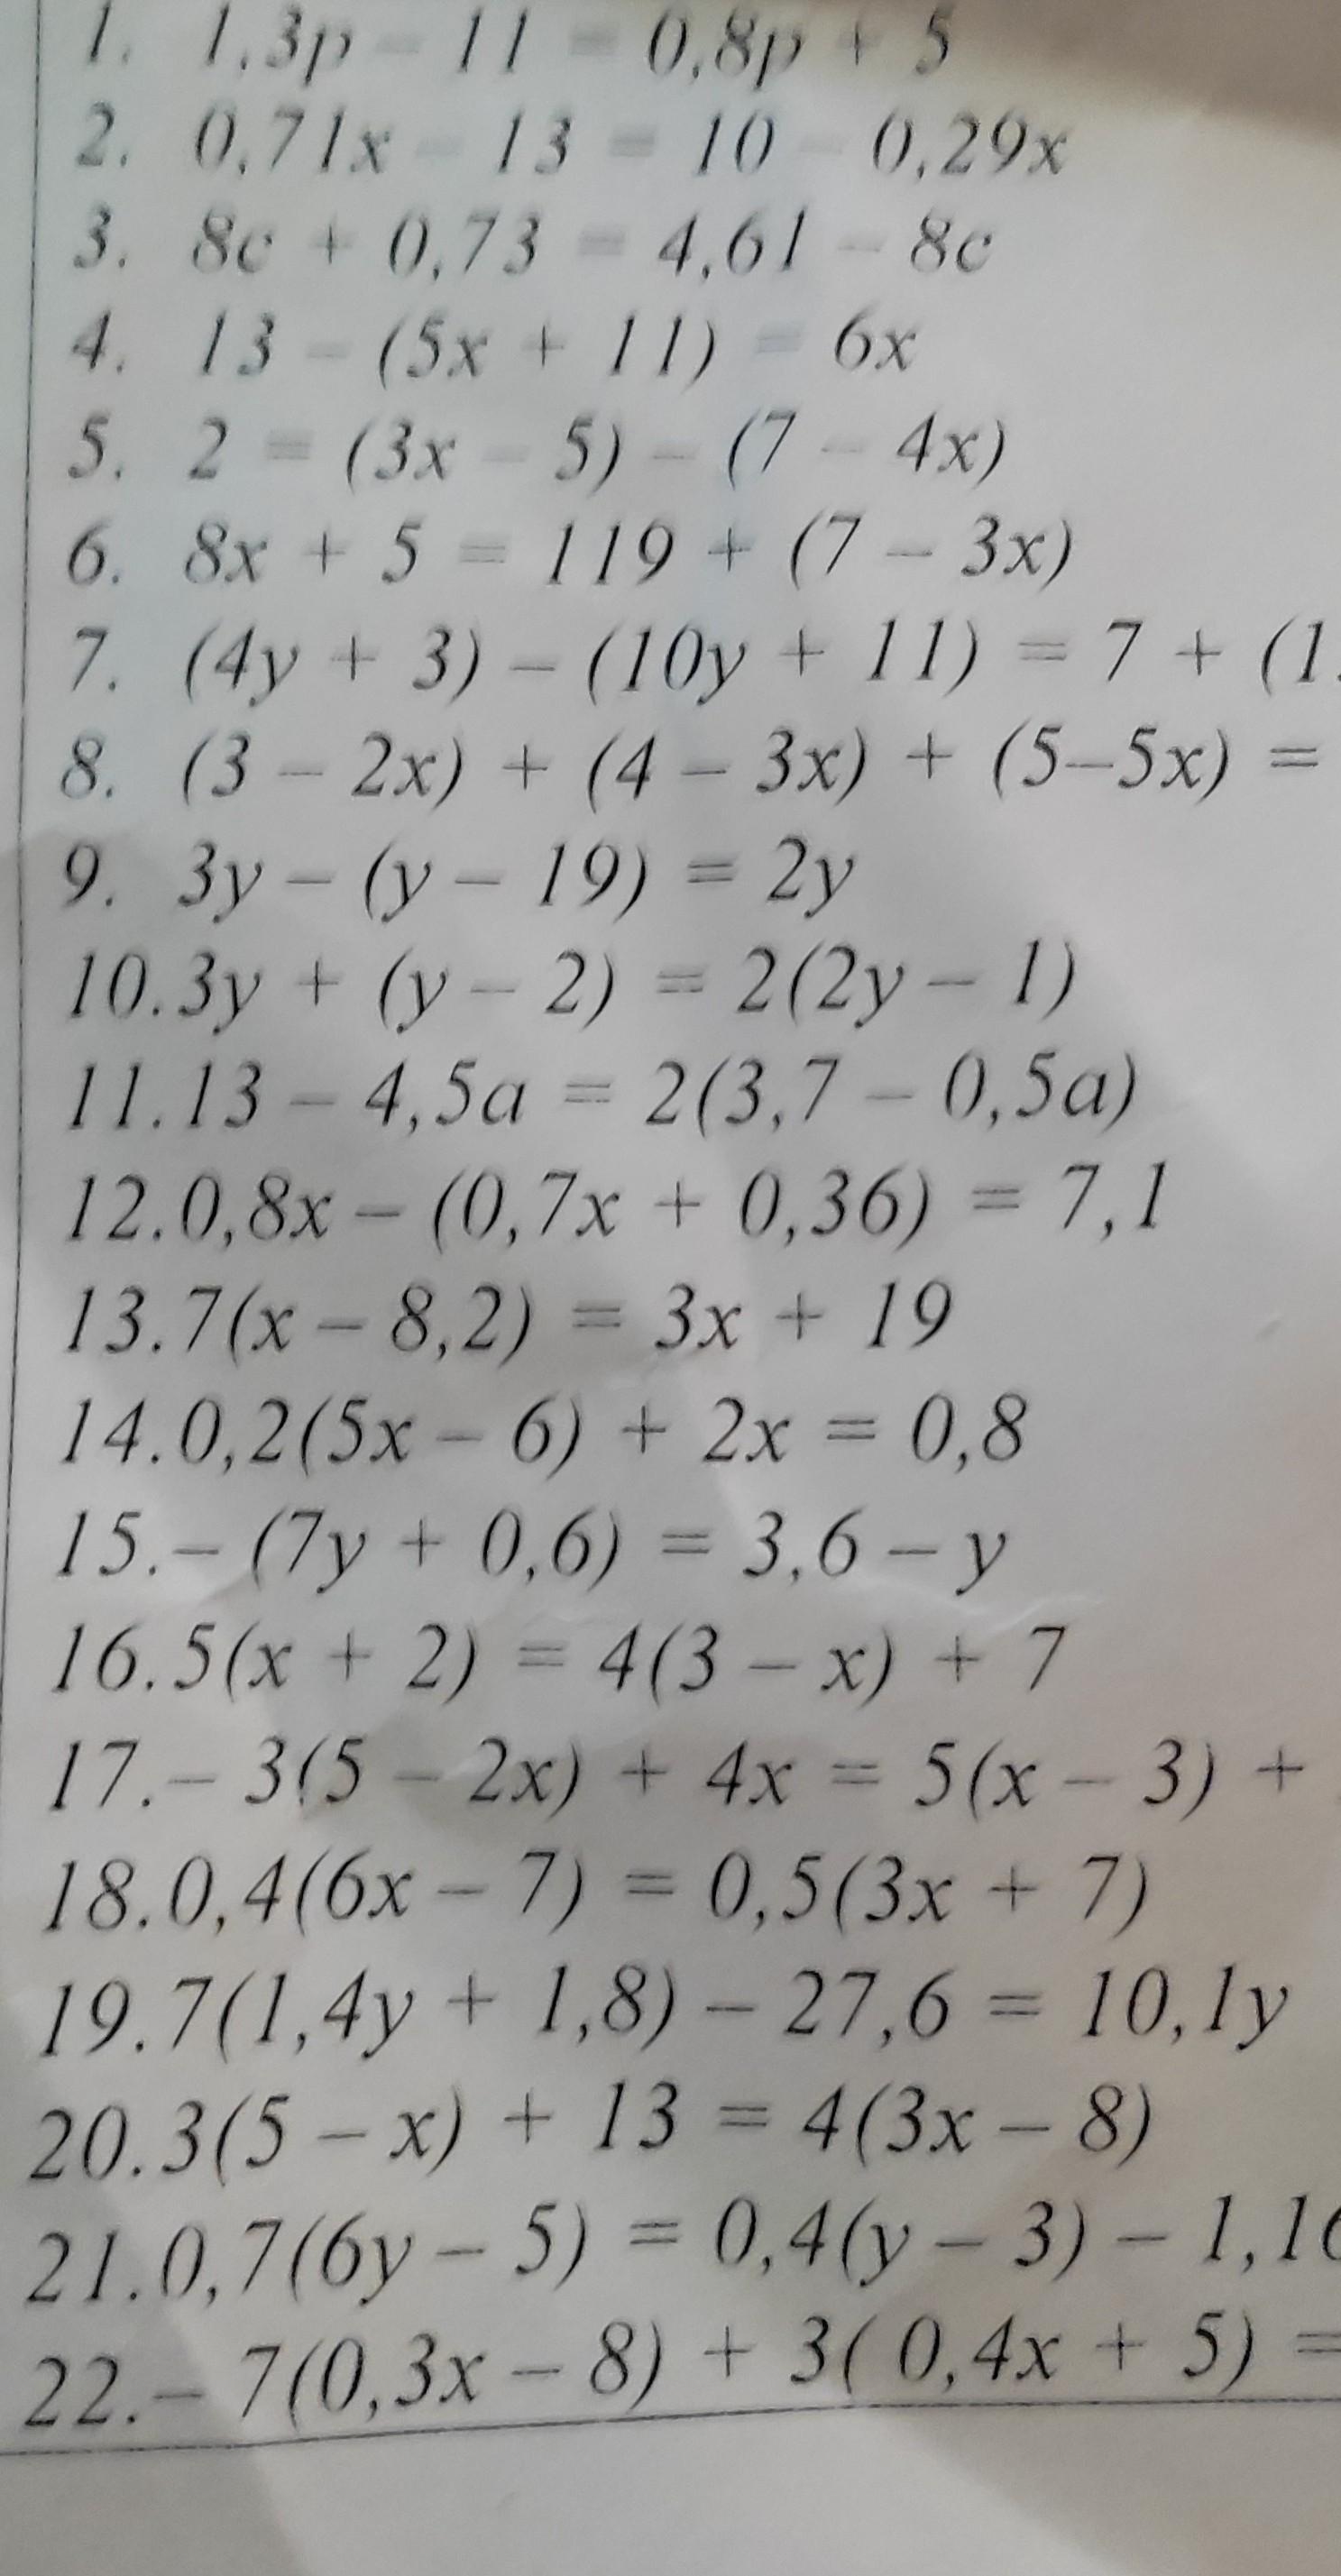 1. 1,3p – 11 = 0,8p + 5
2. 0,71x – 13 = 10 – 0,29x
3. 8c + 0,73 = 4,61 – 8c
4. 13 – (5x + 11) = 6x
5. 2 = (3x – 5) – (7 – 4x)
6. 8x + 5 = 119 + (7 – 3x)
7. (4y + 3) – (10y + 11) = 7 + (1
8. (3 – 2x) + (4 – 3x) + (5–5x) =
9. 3y – (y – 19) = 2y
10. 3y + (y – 2) = 2(2y – 1)
11. 13 – 4,5a = 2(3,7 – 0,5a)
12. 0,8x – (0,7x + 0,36) = 7,1
13. 7(x – 8,2) = 3x + 19
14. 0,2(5x – 6) + 2x = 0,8
15. – (7y + 0,6) = 3,6 – y
16. 5(x + 2) = 4(3 – x) + 7
17. – 3(5 – 2x) + 4x = 5(x – 3) +
18. 0,4(6x – 7) = 0,5(3x + 7)
19. 7(1,4y + 1,8) – 27,6 = 10,1y
20. 3(5 – x) + 13 = 4(3x – 8)
21. 0,7(6y – 5) = 0,4(y – 3) – 1,1
22. – 7(0,3x – 8) + 3( 0,4x + 5) =